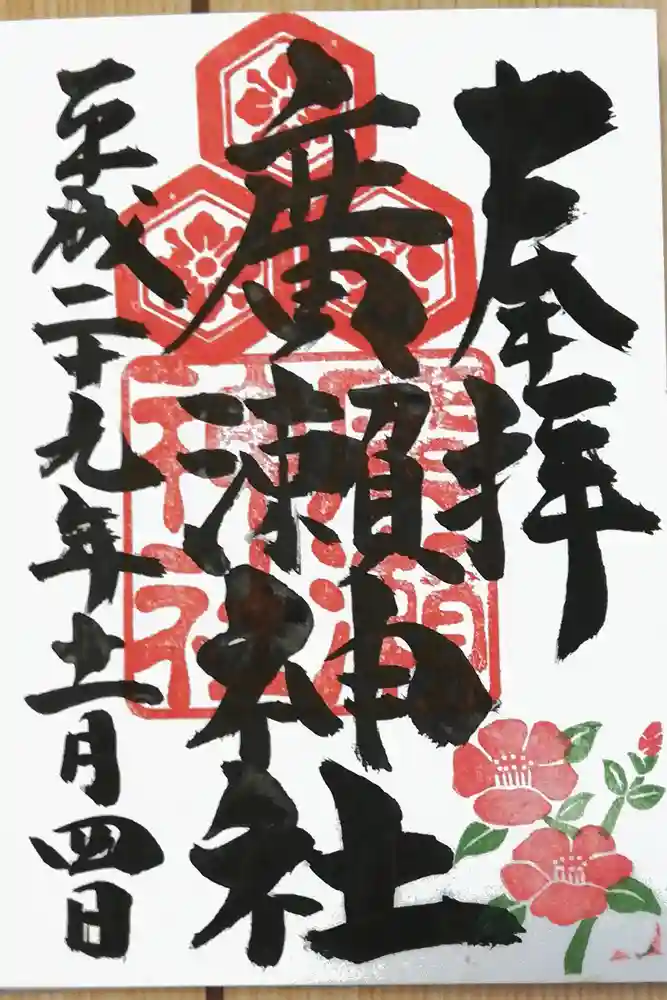 奉拝
廣瀬神社
平成二十九年十一月四日